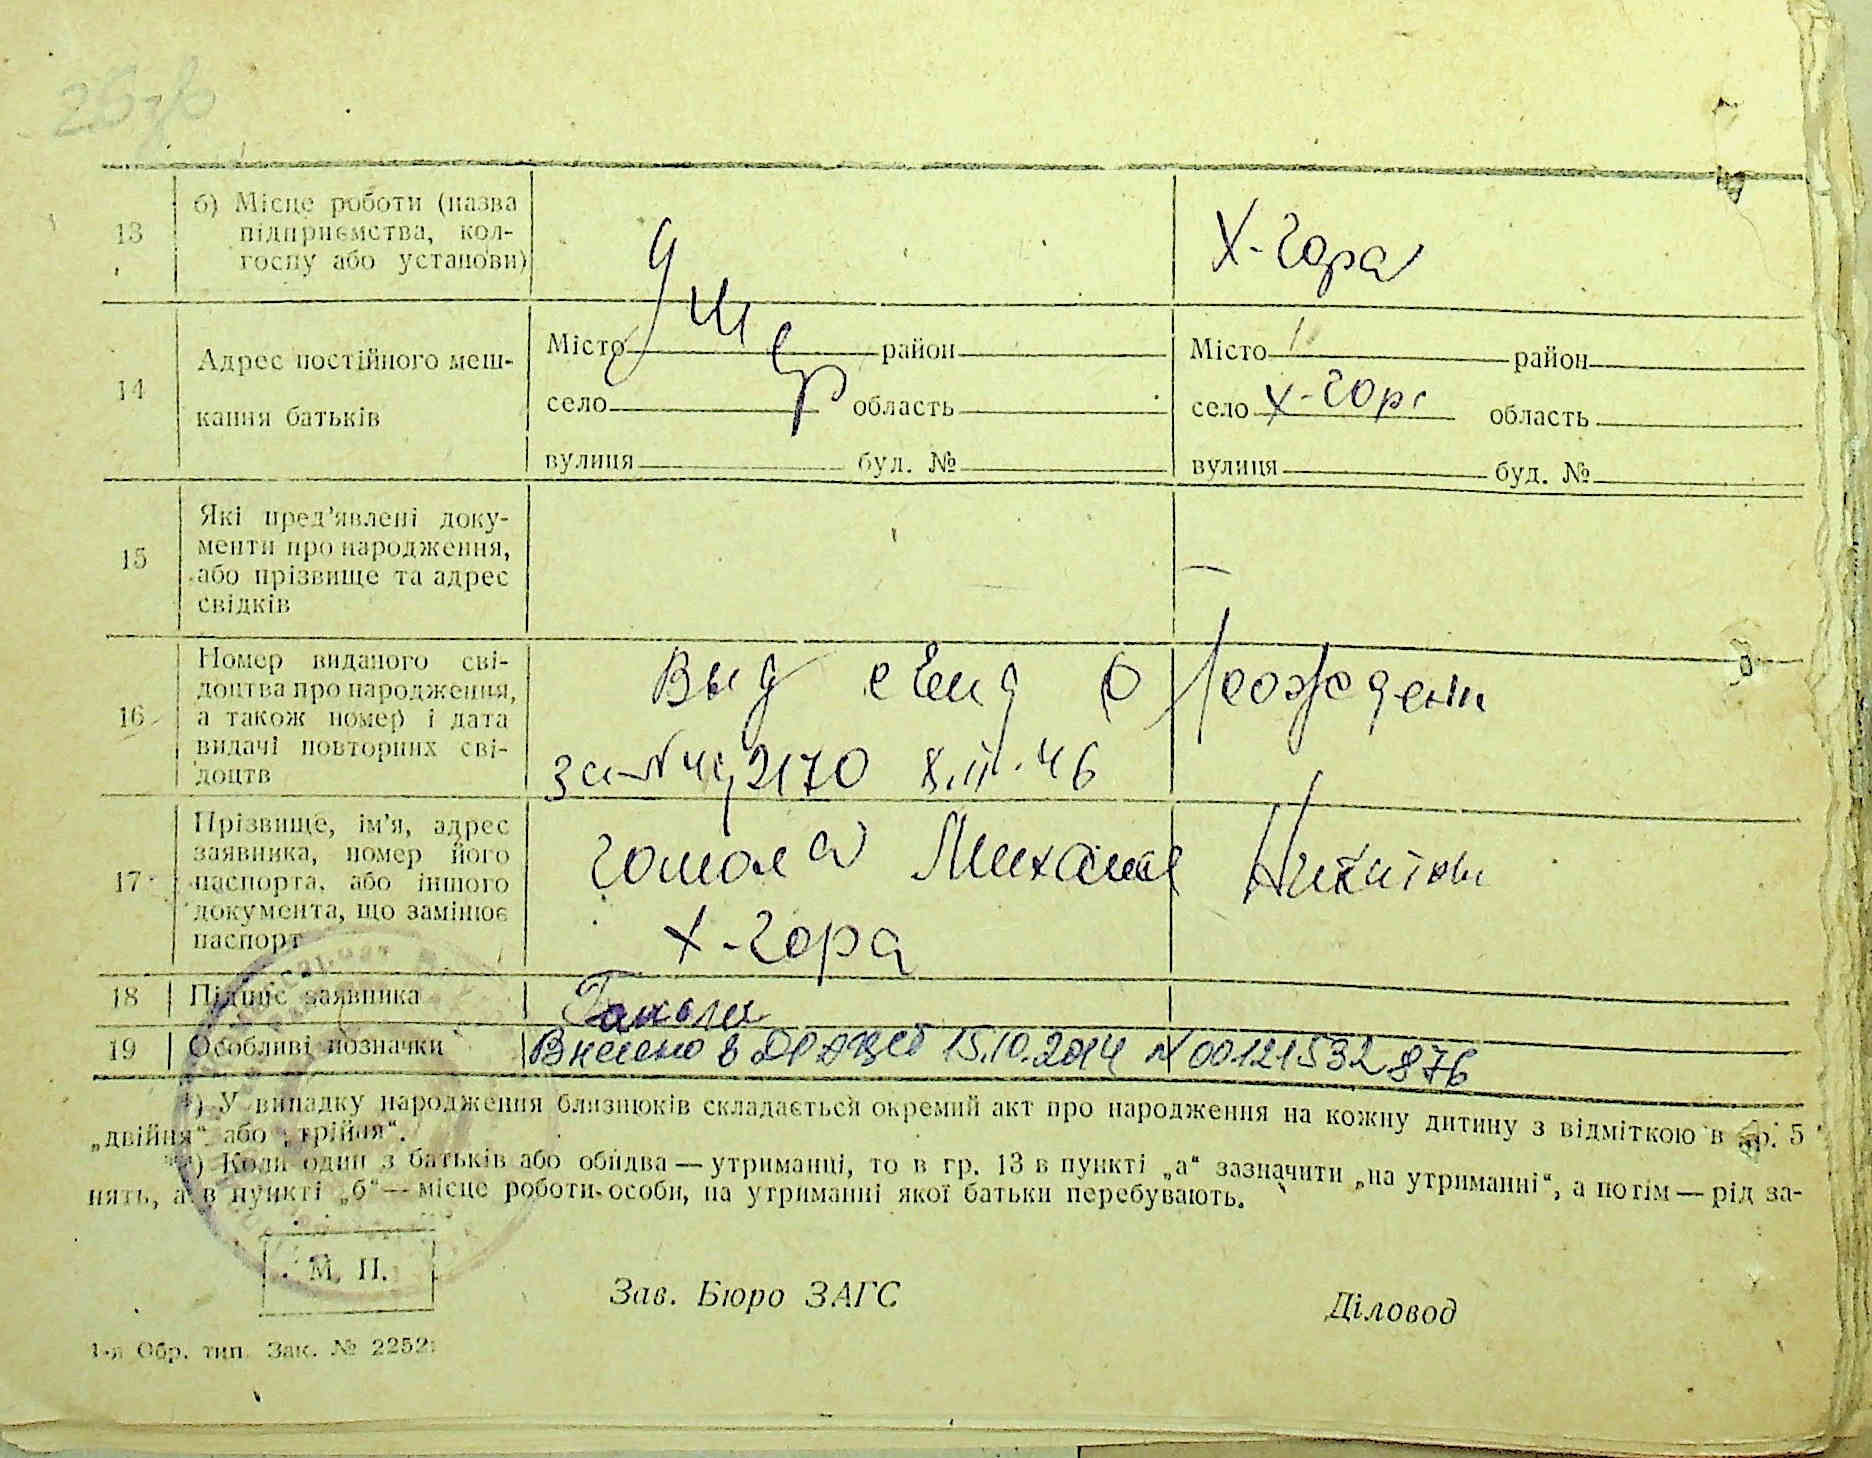 13 б) Місце роботи (назва підприємства, колгоспу або установи)
Умер
Х-гора
14 Адрес постійного мешкання батьків
Місто район
село область
вулиця буд. №
Місто район
село Х-гора область
вулиця буд. №
15 Які пред'явлені документи про народження, або прізвище та адрес свідків
16 Номер виданого свідоцтва про народження, а також номер і дата видачі повторних свідоцтв
Выд свид о рождени
за № 2170 8.III.46
17 Прізвище, ім'я, адрес заявника, номер його паспорта, або іншого документа, що замінює паспорт
Михаил
Х-гора
18 Підпис заявника
19 Особливі позначки
Внесено в ДРАЦСГ 15.10.2014 №00121532876
*) У випадку народження близнюків складається окремий акт про народження на кожну дитину з відміткою в гр. 5
„двійня“ або „трійня“.
**) Коли один з батьків або обидва — утриманці, то в гр. 13 в пункті „а“ зазначити „на утриманні“, а потім — рід за-
нять, а в пункті „б“ — місце роботи особи, на утриманні якої батьки перебувають.
М. П.
Зав. Бюро ЗАГС
Діловод
1-а Обр. тип. Зак. № 2252